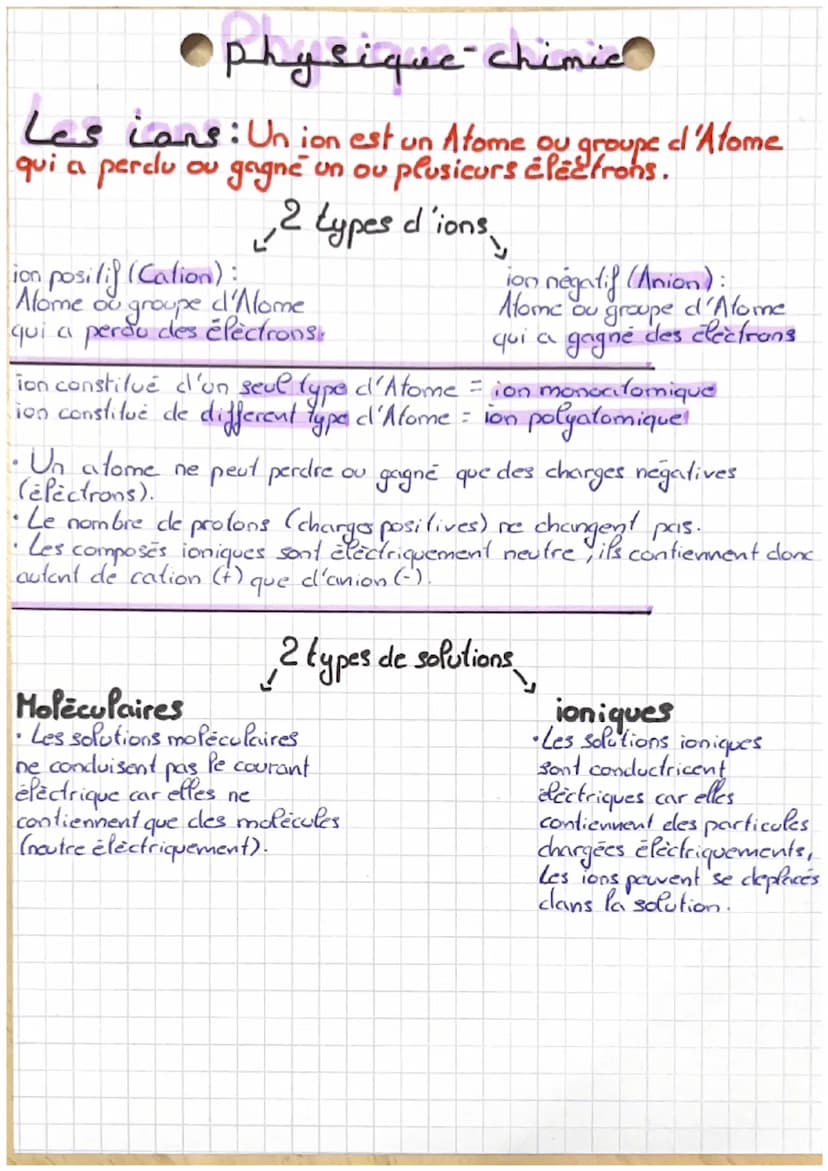 Physique-chimie
Les ions : Un ion est un Atome ou groupe d'Atome
qui a perdu ou gagné un ou plusieurs électrons.
2 types d'ions
ion positif (Cation) :
Atome ou groupe d'Atome
qui a perdu des électrons.
ion négatif (Anion) :
Atome ou groupe d'Atome
qui a gagné des électrons
ion constitué d'un seul type d'Atome = ion monoatomique
ion constitué de different type d'Atome = ion polyatomique
• Un atome ne peut perdre ou gagné que des charges négatives
(électrons).
• Le nombre de protons (charges positives) ne changent pas.
• Les composés ioniques sont électriquement neutre, ils contiennent donc
autant de cation (+) que d'anion (-).
2 types de solutions
Moléculaires
• Les solutions moléculaires
ne conduisent pas le courant
électrique car elles ne
contiennent que des molécules
(neutre électriquement).
ioniques
• Les solutions ioniques
sont conductricent
électriques car elles
contiennent des particules
chargées électriquements,
Les ions peuvent se deplacés
dans la solution.